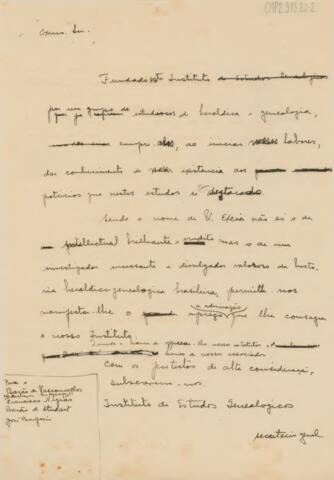 Exmo. Sr.
Fundado este Instituto de Estudos Genealogicos
por um grupo de
estudiosos de heraldica e genealogia,
cumpre-nos, ao iniciar nossos labores,
dar conhecimento de sua existencia aos
patricios que nestes estudos é destacado.
Sendo o nome de V. Excia não só o de
intellectual brilhante e erudito mas o de um
investigador incessante e divulgador valoroso da histo
ria heraldico-genealogica brasileira, permitta-nos
manifestar-lhe o apreço que lhe consagra
a admiração
o nosso Instituto.
lhe nossos estatutos
Com os protestos de alta consideração,
subscrevemo-nos.
Instituto de Estudos Genealogicos
secretario geral
Para o
Barão de Vasconcellos
Francisco Negrão
Barão de Studart
José